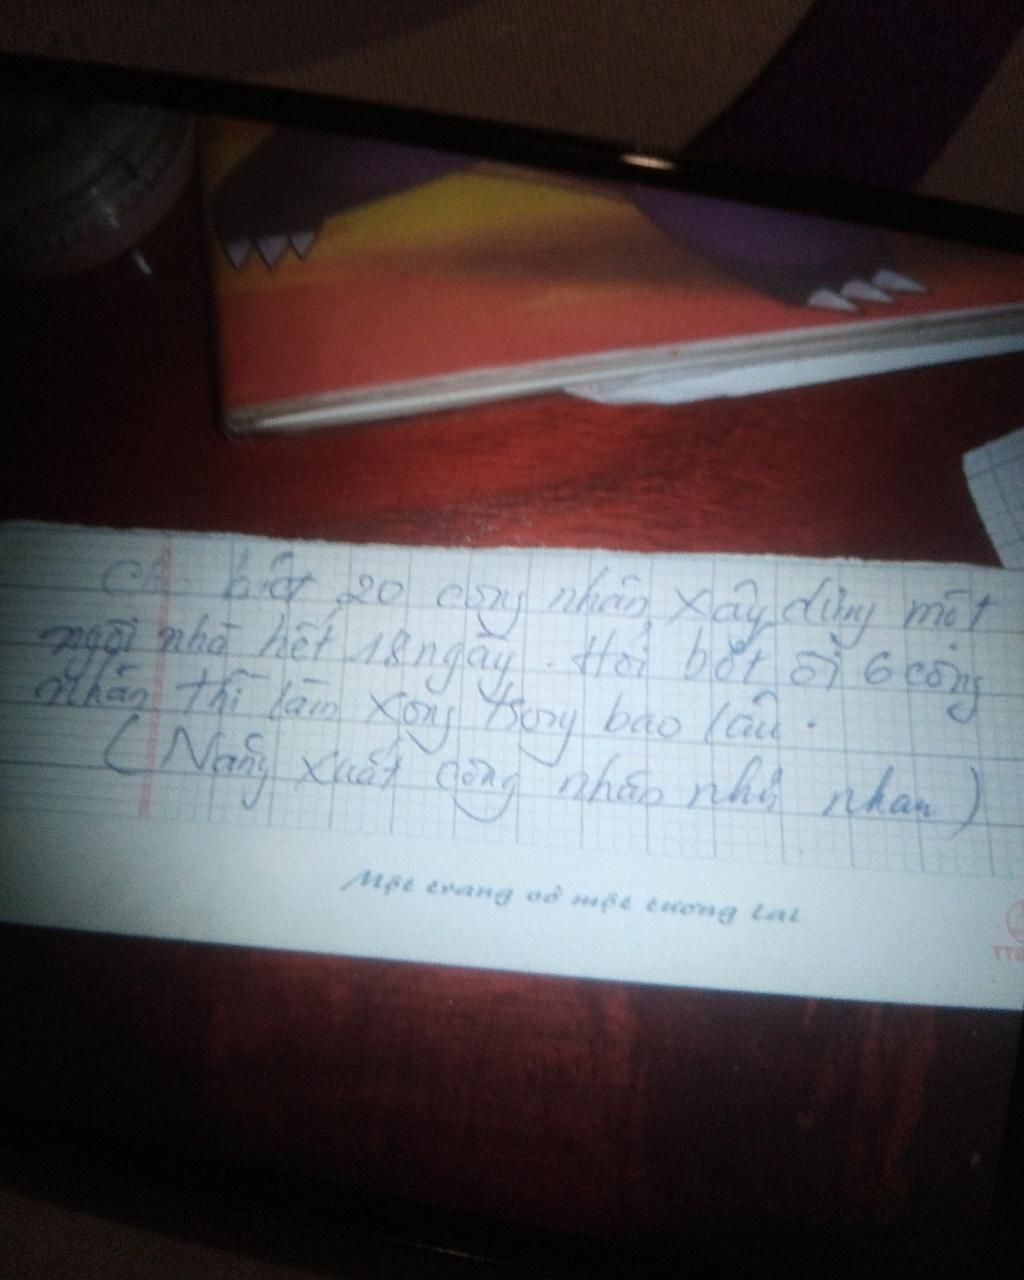 Cho biết 20 công nhân xây dựng một
ngôi nhà hết 18 ngày. Hỏi bớt đi 6 công
nhân thì làm xong trong bao lâu.
(Năng xuất công nhân như nhau)
Một trang vở một tương lai